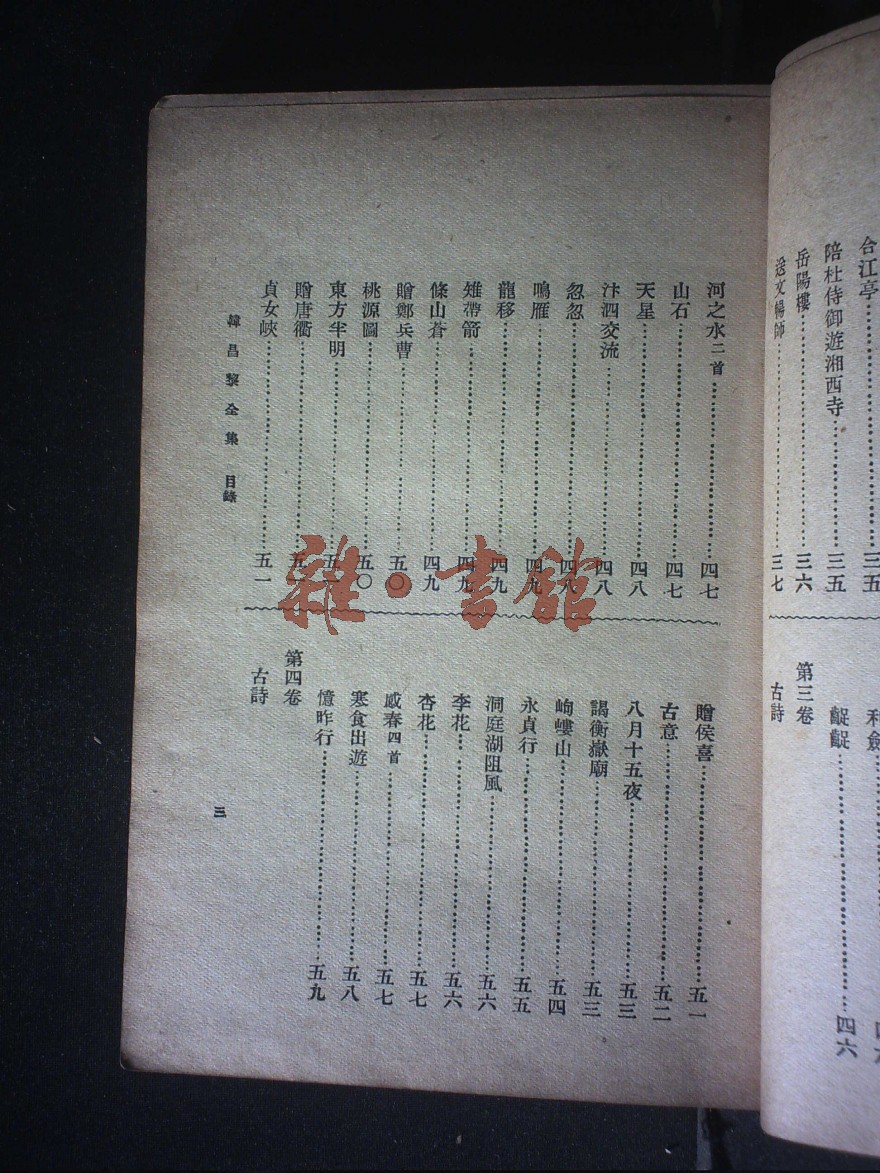 合江亭 三五
陪杜侍御遊湘西寺 三五
岳陽樓 三六
送文暢師 三七
利劍
齪齪 四六
第三卷
古詩
河之水二首 四七
山石 四七
天星 四八
汴泗交流 四八
忽忽 四八
鳴雁 四九
龍移 四九
雉帶箭 四九
條山蒼 四九
贈鄭兵曹 五〇
桃源圖 五〇
東方半明
贈唐衢
貞女峽 五一
贈侯喜 五一
古意 五二
八月十五夜 五三
謁衡嶽廟 五三
岣嶁山 五四
永貞行 五五
洞庭湖阻風 五六
李花 五六
杏花 五七
感春四首 五七
寒食出遊 五八
憶昨行 五九
第四卷
古詩
韓昌黎全集 目錄
三
雜·書館